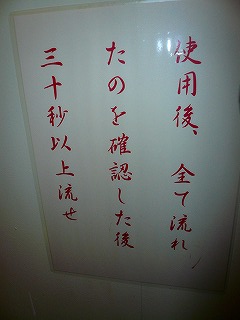 使用後、全て流れ
たのを確認した後
三十秒以上流せ